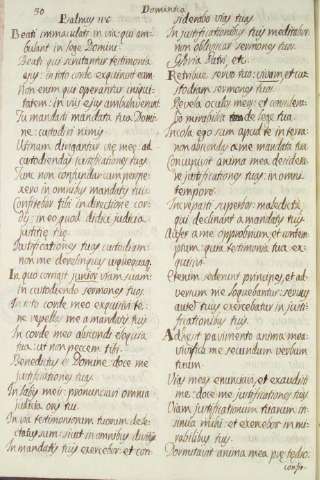 50
Dominica
Psalmus 118
Beati immaculati in via: qui am-
bulant in lege Domini.
Beati qui scrutantur testimonia
ejus: in toto corde exquirunt eum.
Non enim qui operantur iniqui-
tatem: in viis ejus ambulaverunt.
Tu mandasti mandata tua Domi-
ne: custodiri nimis.
Utinam dirigantur vię meę: ad
custodiendas justificationes tuas.
Tunc non confundar cum perspe-
xero in omnibus mandatis tuis.
Confitebor tibi in directione cor-
dis: in eo quod didici judicia
justitię tuę.
Justificationes tuas custodiam:
non me derelinquas usquequaq.
In quo corrigit junior viam suam:
in custodiendo sermones tuos.
In toto corde meo exquisivi te:
ne repellas me a mandatis tuis.
In corde meo abscondi eloquia
tua: ut non peccem tibi.
Benedictus es Domine: doce me
justificationes tuas.
In labiis meis: pronuntiavi omnia
judicia oris tui.
In via testimoniorum tuorum dele-
ctatus sum: sicut in omnibus divitiis.
In mandatis tuis exercebor: et con-
siderabo vias tuas.
In justificationibus tuis meditabor:
non obliviscar sermones tuos.
Gloria Patri, et.
Retribue servo tuo: vivam et cus-
todiam sermones tuos.
Revela oculos meos: et considera-
bo mirabilia de lege tua.
Incola ego sum apud te in terra:
non abscondas a me mandata tua.
Concupivit anima mea desidera-
re justificationes tuas: in omni
tempore.
Increpasti superbos: maledicti
qui declinant a mandatis tuis.
Aufer a me opprobrium, et contem-
ptum: quia testimonia tua ex-
quisivi.
Etenim sederunt principes, et ad-
versum me loquebantur: servus
autem tuus exercebatur in justi-
ficationibus tuis.
Adhęsit pavimento anima mea:
vivifica me secundum verbum
tuum.
Vias meas enuntiavi, et exaudisti
me: doce me justificationes tuas.
Viam justificationum tuarum in-
strue me: et exercebor in mi-
rabilibus tuis.
Dormitavit anima mea prę tędio:
confir-